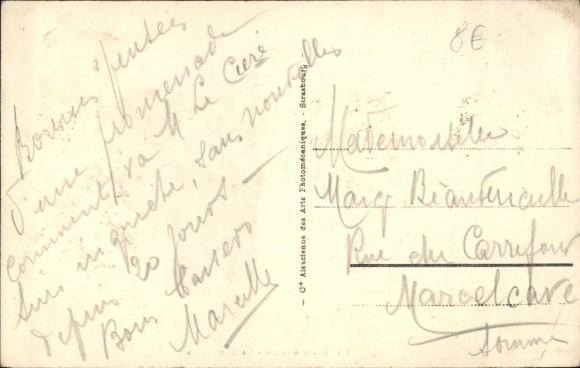 Bonnes pensées
d'une promenade
comment va M Le Curé
suis inquiète, sans nouvelles
depuis 20 jours
Bons baisers
Marcelle
Cie Alsacienne des Arts Photomécaniques, - Strasbourg
8€
Mademoiselle
Marg
Rue du Carrefour
Marcelcave
Somme